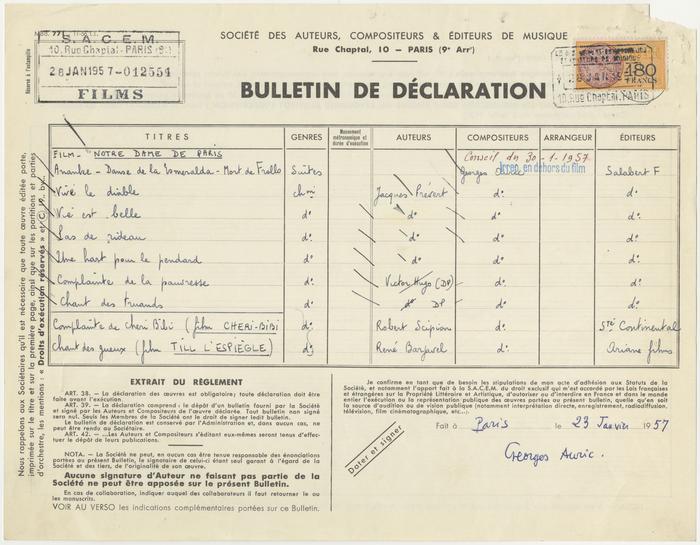 Mod. 77
S.A.C.E.M.
10, Rue Chaptal - PARIS (9e)
28 JAN 1957-012554
FILMS
Réservé à l'estampille
SOCIÉTÉ DES AUTEURS, COMPOSITEURS & ÉDITEURS DE MUSIQUE
Rue Chaptal, 10 — PARIS (9e Arrt)
BULLETIN DE DÉCLARATION
480
FRANCS
10, Rue Chaptal, PARIS
TITRES GENRES Mouvement métronomique et durée d'exécution AUTEURS COMPOSITEURS ARRANGEUR ÉDITEURS
FILM - NOTRE DAME DE PARIS Conseil du 30-1-1957.
Anankre - Danse de la Esmeralda - Mort de Frollo Suites Georges en dehors du film Salabert F
Vive le diable chon Jacques Prévert d°
Vie est belle d° d° d° d°
Pas de rideau d° d° d° d°
Une hart pour le pendard d° d° d° d°
Complainte de la pauvresse d° Victor Hugo (DP) d° d°
Chant des truands d° d° DP d° d°
Complainte de Cheri Bibi (film CHERI-BIBI d° Robert Scipion d° Sté Continental
Chant des gueux (film TILL L'ESPIEGLE) d° René Barjavel d° Ariane films
Nous rappelons aux Sociétaires qu'il est nécessaire que toute œuvre éditée porte,
imprimée sur le titre et sur la première page, ainsi que sur les partitions et parties
d'orchestre, les mentions : « Droits d'exécution réservés » et
EXTRAIT DU RÈGLEMENT
ART. 38. — La déclaration des œuvres est obligatoire; toute déclaration doit être
faite avant l'exécution.
ART. 39. — La déclaration se fait par le dépôt d'un bulletin fourni par la Société
et signé par les Auteurs et Compositeurs de l'œuvre déclarée. Tout bulletin non
signé est nul. Seuls les Membres de la Société ont le droit de signer ledit bulletin.
Le bulletin de déclaration est conservé par l'Administration et, dans aucun cas, ne
peut être rendu au Sociétaire.
ART. 42. — ...Les Auteurs et Compositeurs s'éditant eux-mêmes seront tenus d'effec-
tuer le dépôt de leurs publications.
NOTA. — La Société ne peut, en aucun cas être tenue responsable des énonciations
portées au présent Bulletin, le signataire de celui-ci étant seul garant à l'égard de la
Société et des tiers, de l'originalité de son œuvre.
Aucune signature d'Auteur ne faisant pas partie de la
Société ne peut être apposée sur le présent Bulletin.
En cas de collaboration, indiquer auquel des collaborateurs il faut retourner le ou
les manuscrits.
VOIR AU VERSO les indications complémentaires portées sur ce Bulletin.
Je confirme en tant que de besoin les stipulations de mon acte d'adhésion aux Statuts de la
Société, et notamment l'apport fait à la S.A.C.E.M. du droit exclusif qui m'est accordé par les Lois françaises
et étrangères sur la Propriété Littéraire et Artistique, d'autoriser ou d'interdire en France et dans le monde
entier l'exécution ou la représentation publique des œuvres portées au présent bulletin, quelle qu'en soit
la source d'audition ou de vision publique (notamment interprétation directe, enregistrement, radiodiffusion,
télévision, film cinématographique, etc...).
Fait à Paris le 23 Janvier 1957
Dater et signer
Georges Auric.